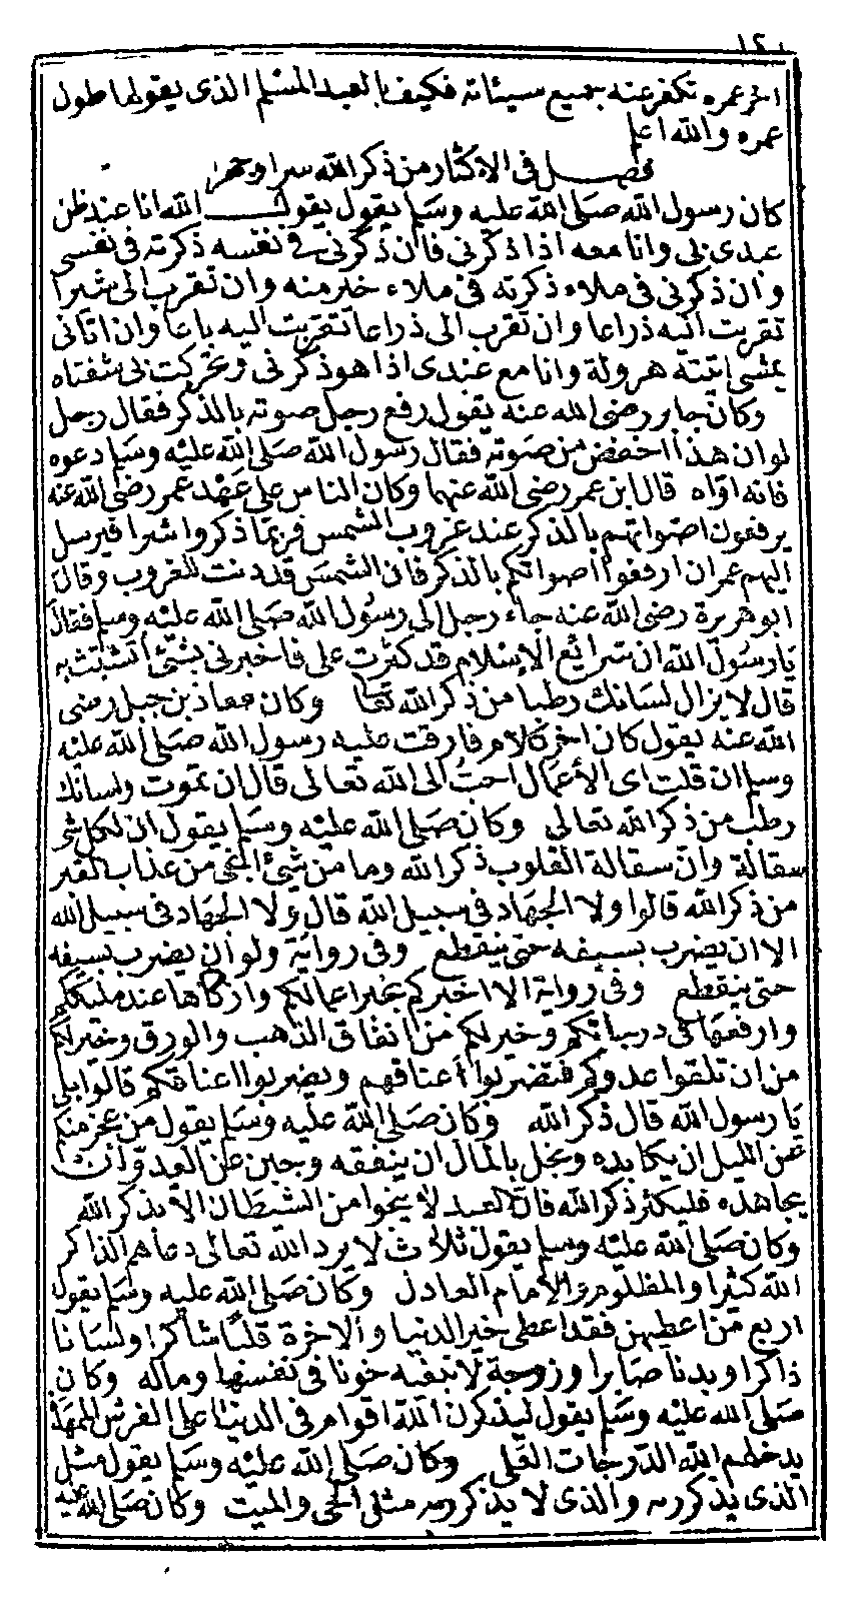 ١٢١
اخر عمره تكفر عنه جميع سيئاته فكيف بالعبد المسلم الذى يقولها طول
عمره والله اعلم
فصل فى الاكثار من ذكر الله سرا وجهرا
كان رسول الله صلى الله عليه وسلم يقول يقول الله انا عند ظن
عبدى بى وانا معه اذا ذكرنى فان ذكرنى فى نفسه ذكرته فى نفسى
وان ذكرنى فى ملاء ذكرته فى ملاء خير منه وان تقرب الى شبرا
تقربت اليه ذراعا وان تقرب الى ذراعا تقربت اليه باعا وان اتانى
يمشى اتيته هرولة وانا مع عبدى اذا هو ذكرنى وتحركت بى شفتاه
وكان جابر رضى الله عنه يقول رفع رجل صوته بالذكر فقال رجل
لو ان هذا اخفض من صوته فقال رسول الله صلى الله عليه وسلم دعوه
فانه اواه قال ابن عمر رضى الله عنهما وكان الناس على عهد عمر رضى الله عنه
يرفعون اصواتهم بالذكر عند غروب الشمس فربما ذكروا سرا فيرسل
اليهم عمران ارفعوا اصواتكم بالذكر فان الشمس قد دنت للغروب وقال
ابو هريرة رضى الله عنه جاء رجل الى رسول الله صلى الله عليه وسلم فقال
يا رسول الله ان شرائع الاسلام قد كثرت على فاخبرنى بشئ اتشبث به
قال لا يزال لسانك رطبا من ذكر الله تعا وكان معاذ بن جبل رضى
الله عنه يقول كان اخر كلام فارقت عليه رسول الله صلى الله عليه
وسلم ان قلت اى الأعمال احب الى الله تعالى قال ان تموت ولسانك
رطب من ذكر الله تعالى وكان صلى الله عليه وسلم يقول ان لكل شئ
سقالة وان سقالة القلوب ذكر الله وما من شئ انجى من عذاب القبر
من ذكر الله قالوا ولا الجهاد فى سبيل الله قال ولا الجهاد فى سبيل الله
الا ان يضرب بسيفه حتى ينقطع وفى رواية ولو ان يضرب بسيفه
حتى ينقطع وفى رواية الا اخبركم بخير اعمالكم وازكاها عند مليككم
وارفعها فى درجاتكم وخير لكم من انفاق الذهب والورق وخير لكم
من ان تلقوا عدوكم فتضربوا أعناقهم ويضربوا اعناقكم قالوا بلى
يا رسول الله قال ذكر الله وكان صلى الله عليه وسلم يقول من عجز منكم
عن الليل ان يكابده وبخل بالمال ان ينفقه وجبن عن العدو ان
يجاهده فليكثر ذكر الله فان العبد لا ينجوا من الشيطان الا بذكر الله
وكان صلى الله عليه وسلم يقول ثلاث لا يرد الله تعالى دعاهم الذاكر
الله كثيرا والمظلوم والامام العادل وكان صلى الله عليه وسلم يقول
اربع من اعطيهن فقد اعطى خير الدنيا والاخرة قلبا شاكرا ولسانا
ذاكرا وبدنا صابرا وزوجة لا تبغيه خونا فى نفسها وماله وكان
صلى الله عليه وسلم يقول ليذكرن الله اقوام فى الدنيا على الفرش الممهدة
يدخلهم الله الدرجات العلى وكان صلى الله عليه وسلم يقول مثل
الذى يذكر ربه والذى لا يذكر ربه مثل الحى والميت وكان صلى الله عليه